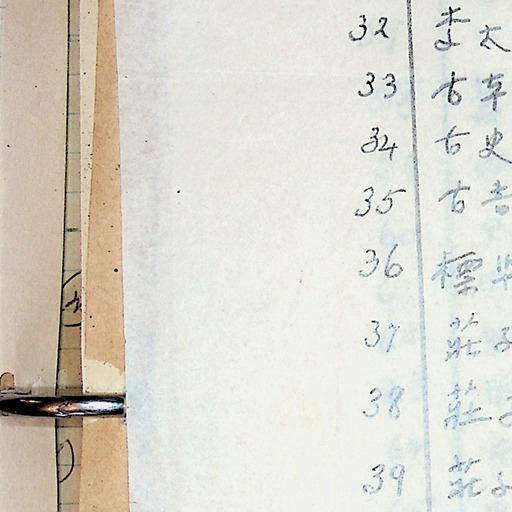 32 李太
33 古本
34 古史
35 古
36 標
37 莊子
38 莊子
39 莊子